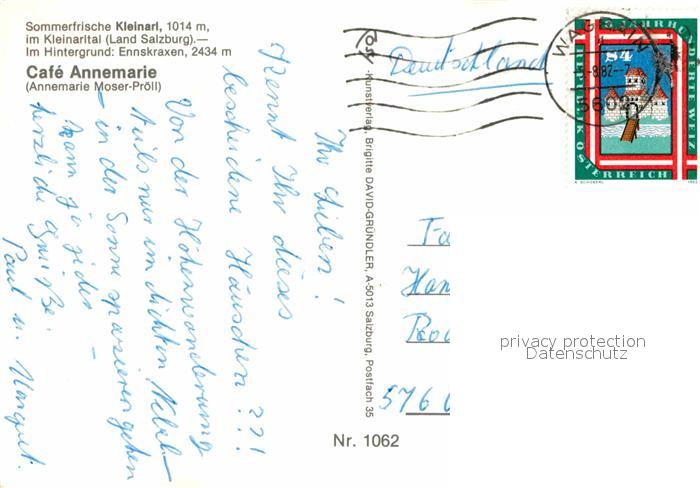 Sommerfrische Kleinarl, 1014 m,
im Kleinarltal (Land Salzburg).—
Im Hintergrund: Ennskraxen, 2434 m
Café Annemarie
(Annemarie Moser-Pröll)
Ihr Lieben!
Kennt Ihr dieses
bescheidene Häuschen??!
Von der Höhenwanderung
teils nur im dichten Nebel –
– in der Sonne spazierengehen
kann ja jeder –
herzliche Grüße
Paul u. Margret.
Post
Kunstverlag, Brigitte DAVID-GRÜNDLER, A-5013 Salzburg, Postfach 35
Nr. 1062
Deutschland
WAGRAIN
82-7
5602
S4
REPUBLIK ÖSTERREICH
576
privacy protection
Datenschutz